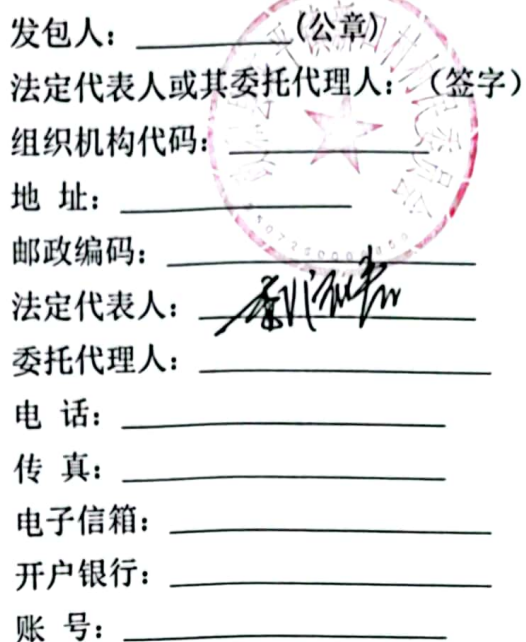 发包人：（公章）
法定代表人或其委托代理人：（签字）
组织机构代码：
地 址：
邮政编码：
法定代表人：
委托代理人：
电 话：
传 真：
电子信箱：
开户银行：
账 号：